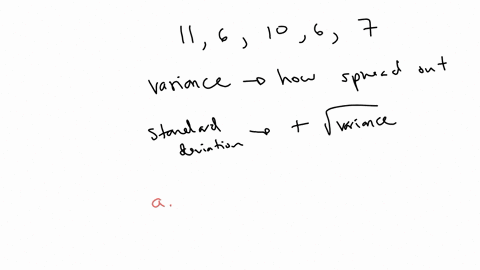 11, 6, 10, 6, 7
variance → how spread out
standard deviation → + √variance
a.